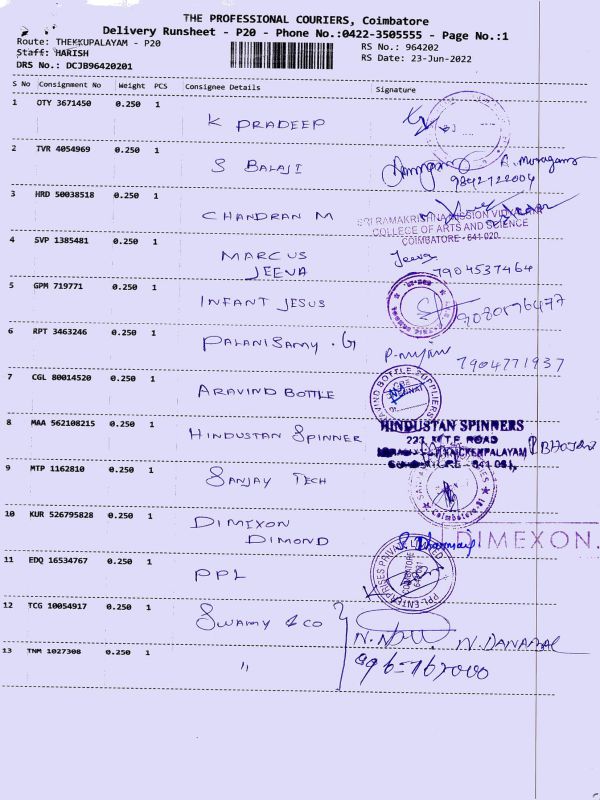 THE PROFESSIONAL COURIERS, Coimbatore
Delivery Runsheet - P20 - Phone No.:0422-3505555 - Page No.:1
Route: THEKKUPALAYAM - P20
Staff: HARISH
DRS No.: DCJB96420201
RS No.: 964202
RS Date: 23-Jun-2022
S No Consignment No Weight PCS Consignee Details Signature
1 OTY 3671450 0.250 1 K PRADEEP
2 TVR 4054969 0.250 1 S BALAJI
9842722004
3 HRD 50038518 0.250 1 CHANDRAN M
SRI RAMAKRISHNA MISSION VIDYALAYA
COLLEGE OF ARTS AND SCIENCE
COIMBATORE - 641 020.
4 SVP 1385481 0.250 1 MARCUS
JEEVA
Jeeva
7904537464
5 GPM 719771 0.250 1 INFANT JESUS
9080176477
6 RPT 3463246 0.250 1 PALANISAMY . G
7904771937
7 CGL 80014520 0.250 1 ARAVIND BOTTLE
8 MAA 562108215 0.250 1 HINDUSTAN SPINNER
HINDUSTAN SPINNERS
9 MTP 1162810 0.250 1 SANJAY TECH
10 KUR 526795828 0.250 1 DIMIXON
DIMOND
DIMEXON.
11 EDQ 16534767 0.250 1 PPL
PPL ENTERPRISES PRIVATE LIMITED
COIMBATORE
12 TCG 10054917 0.250 1 SWAMY & CO
13 TNM 1027308 0.250 1 "